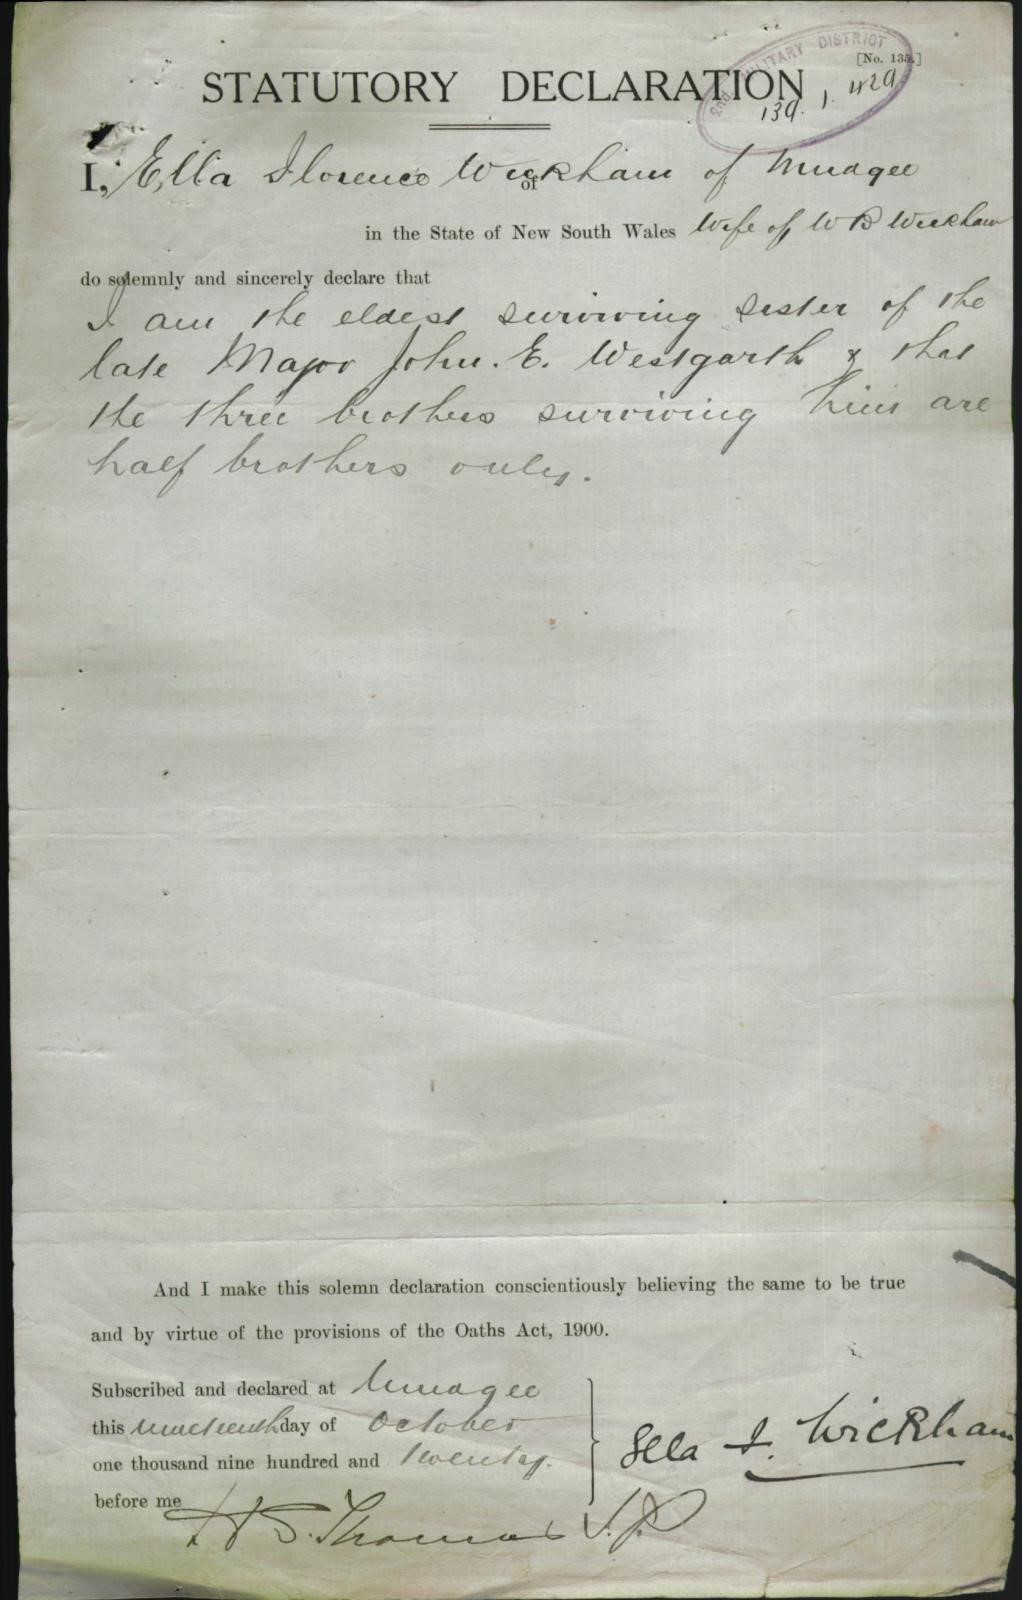 2nd MILITARY DISTRICT
[No. 135.]
STATUTORY DECLARATION
139. 1. 429
I, Ella Florence Wickham of Mudgee
of
in the State of New South Wales Wife of W B Wickham
do solemnly and sincerely declare that
I am the eldest surviving sister of the
late Major John. E. Westgarth & that
the three brothers surviving him are
half brothers only.
And I make this solemn declaration conscientiously believing the same to be true
and by virtue of the provisions of the Oaths Act, 1900.
Subscribed and declared at Mudgee
this nineteenth day of October
one thousand nine hundred and twenty.
Ella F. Wickham
before me
H S. Thomas J.P